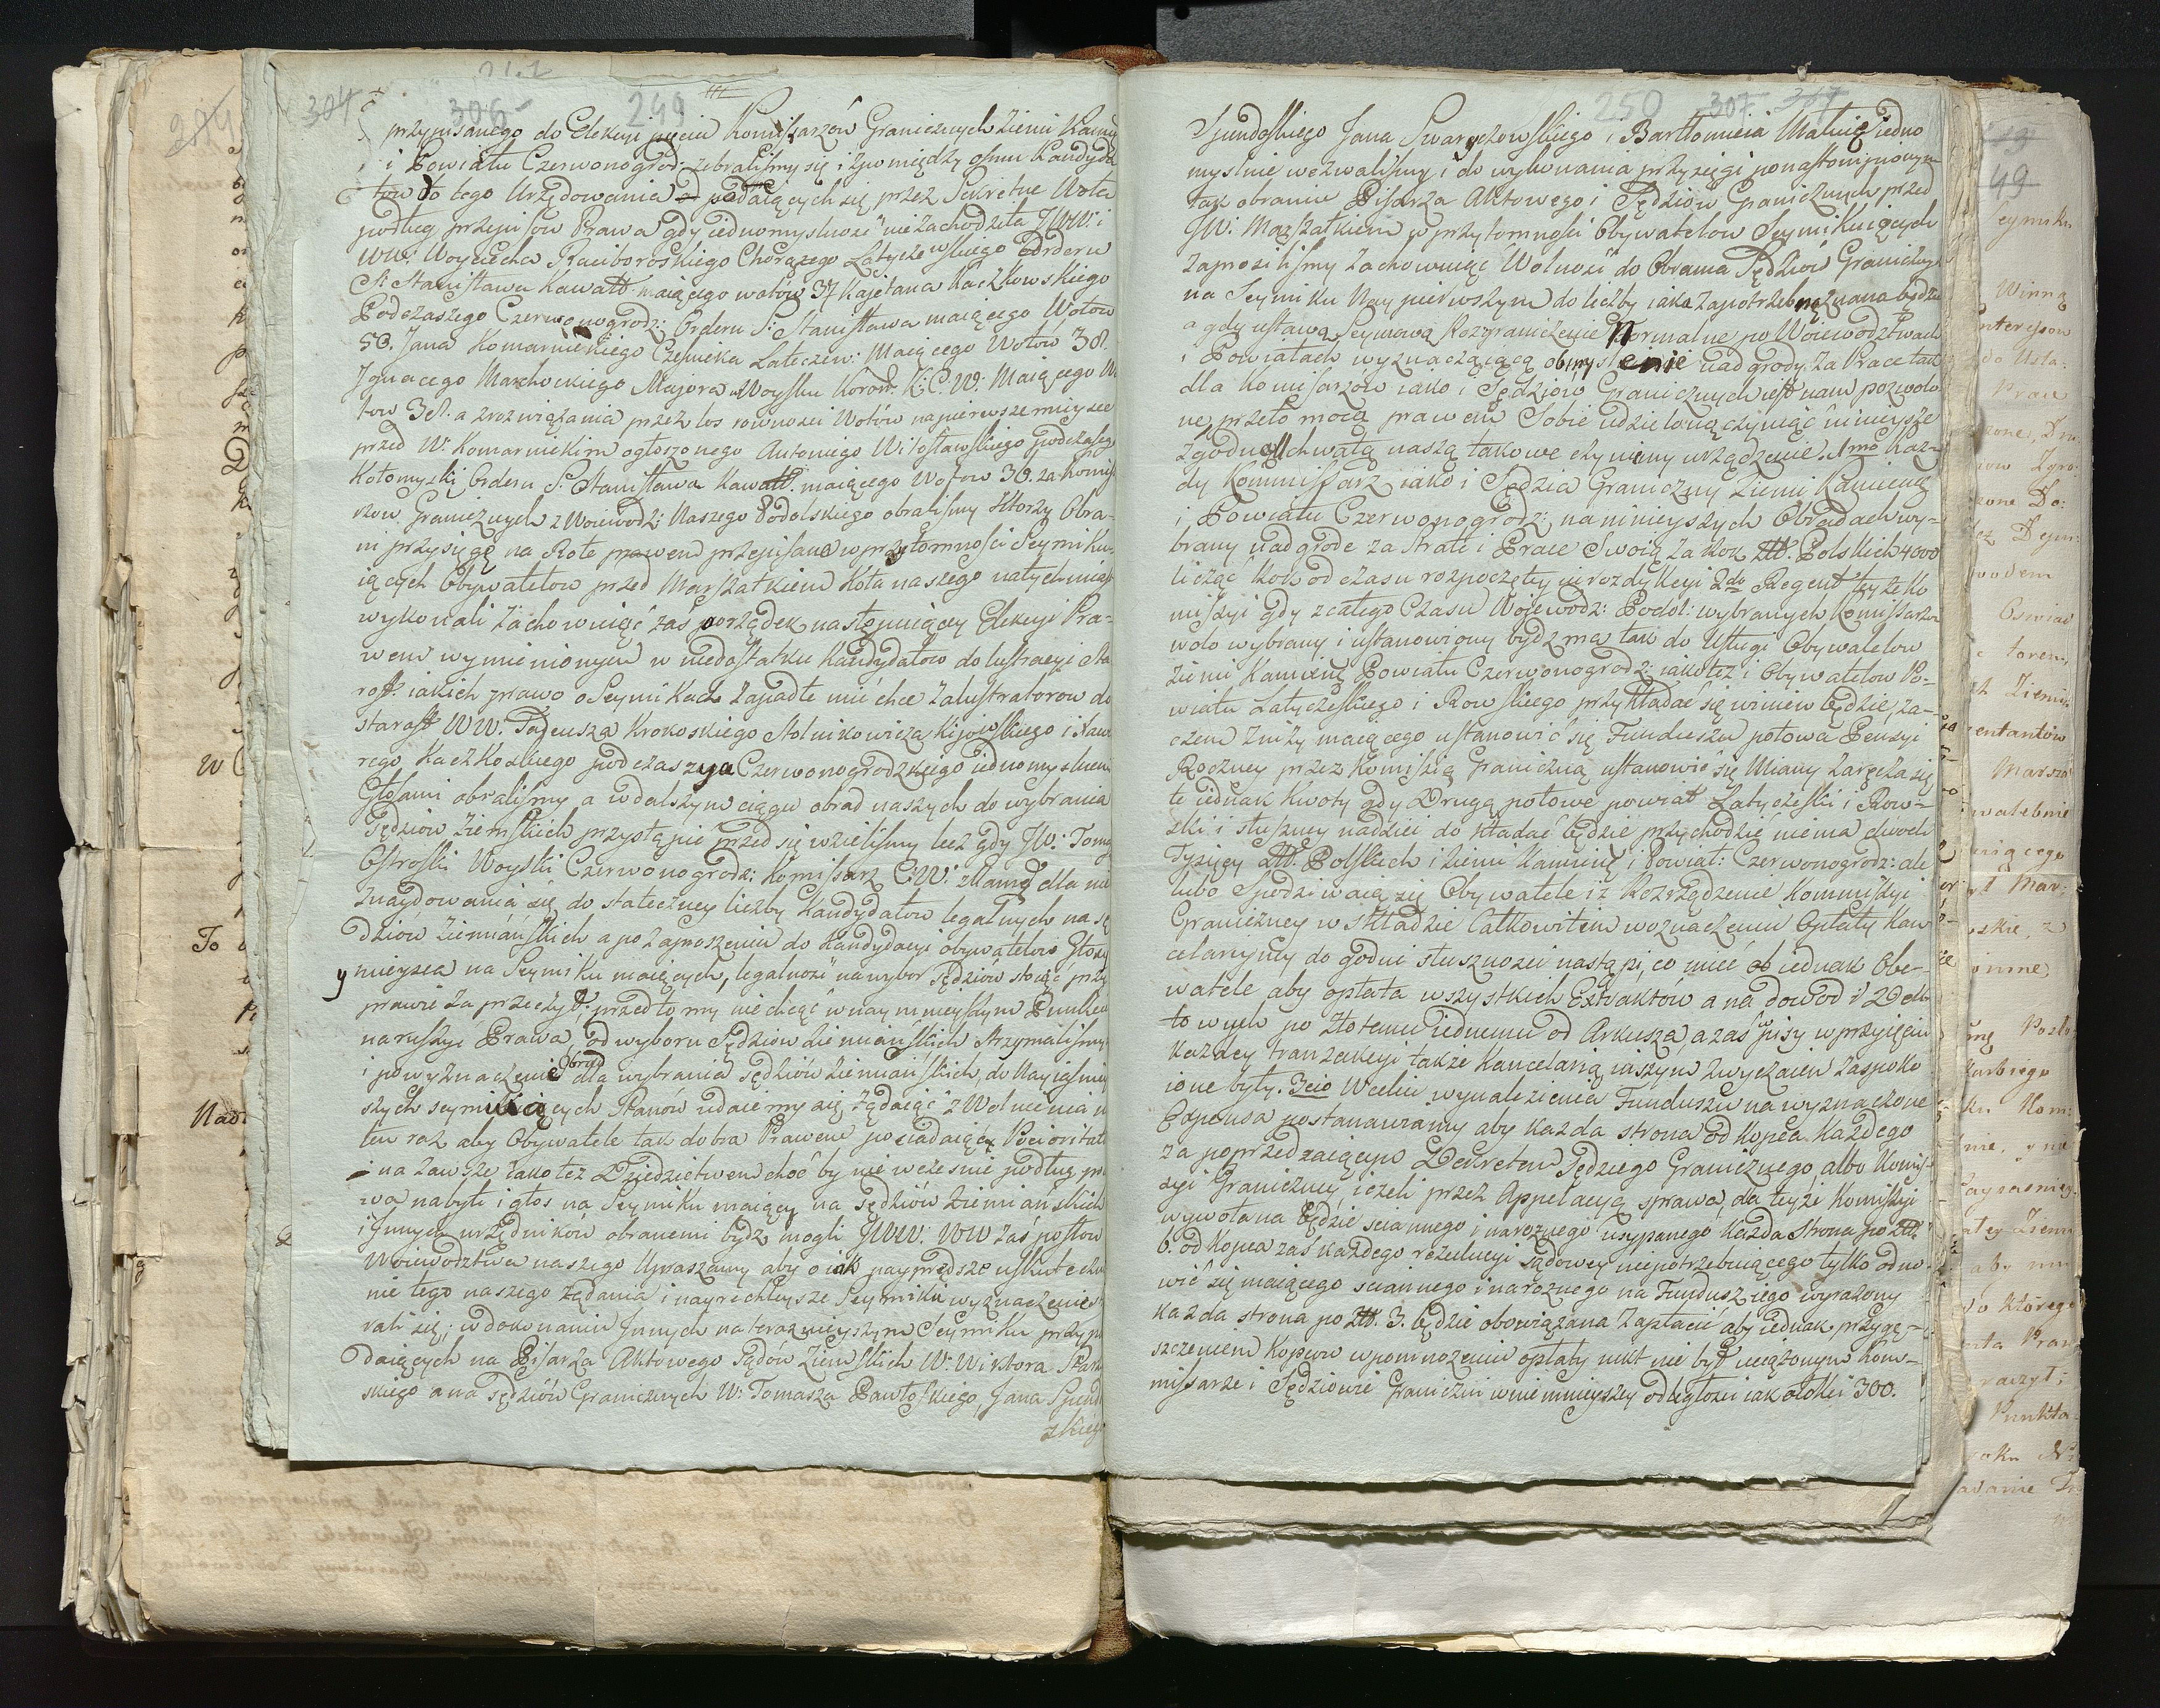 304 306 249
przypisanego do Elekcyi pięciu Komissarzów Granicznych Ziemi Kamie
i Powiatu Czerwonogrod: zebraliśmy się i żwo między ośmu Kandyda
tow do tego Urzędowania podaiących się przez Sekretne Wota
podług przepisow Prawa gdy iednomyslność nie zachodzeła JWW: i
WW: Woyciecha Raciborskiego Chorążego Latyczewskiego Orderu
S: Stanisława Kawall: maiącego wotów 37 Kajetana Kaczkowskiego
Podczaszego Czerwonogrodz: Orderu S: Stanisława maiącego Wotow
50. Jana Komarnickiego Cześnika Latczew: Maiącego Wotów 38.
Ignacego Marchockiego Majora w Woysku Koron: K: C. W: Maiącego W
tow 38. a zrozwiązania przez los rowności Wotów napierwsze mieysce
przed W: Komarnickim ogłoszonego Antoniego Witosławskiego podczasze
Kołomyski Orderu S: Stanisława Kawall: maiącego Wotow 38. za Komis
rzow Granicznych z Woiewodz: Naszego Podolskiego obraliśmy Ktorzy Obra-
ni przysięgę na Rote prawem przepisaną w przytomności Seymiku-
iących Obywatelow przed Marszałkiem Koła naszego natychmiast
wykonali Zachowuiąc zaś porządek następuiący Elekcyi Pra-
wem wymienionym w niedostatku Kandydatow do lustracyi Sta
rost: iakich prawo o Seymikach zapadłe mieć chce Zalustratorow do
Starost WW. Tadeusza Krokoskiego Stolnikowicza Kijowskiego i Xaw
rego Kaczkoskiego podczaszyca Czerwonogrodzkiego iednomyslnemi
Głosami obraliśmy a w dalszym ciągu obrad naszych do wybrania
Sędziow Ziemskich przystąpić przed się wzieliśmy lecz gdy JW: Toma
Ostroski Woyski Czerwonogrodz: Komissarz C: W: dla nie
znaydowania się do stateczney liczby Kandydatow legalnych na Sę
dziów Ziemiańskich a po zaproszeniu do Kandydacyi obywatelow Głosy
y mieysca na Seymiku maiących, legalność na wybor Sędziów stoiąc przy
prawie za przeczył: przed to my nie chcąc w naymnieyszym Punkcie
naruszyć Prawa, od wyboru Sędziow Ziemiańskich strzymaliśmy
i powyznaczenie Obrad dla wybrania Sędziów Ziemiańskich, do Nayiaśniey
szych seymuiących Stanów udaiemy się żądaiąc z Wolnienia n
ten raz aby Obywatele tak dobra Prawem posiadaiący Pocioritatis
i na zawsze iako też Dziedzictwem choć by nie wcześnie podług pra
wa nabyli i głos na Seymiku maiący na Sędziów Ziemiańskich
i Innych urzędników obranemi bydz mogli JWW: WW zaś posłow
Woiewodztwa naszego Upraszamy aby o iak nayprędsze uskuteczni
nie tego naszego żądania i nayrechleysze Seymiku wyznaczenie st
rali się; w dokonaniu Innych na teraznieyszym Seymiku przypa
daiących na Pisarza Aktowego Sądów Ziemskich W: Wiktora
skiego a na Sędziów Granicznych W: Tomasza Pawłoskiego, Jana Spend
skieg
250 307
Spendoskiego Jana Swaryczowskiego i Bartłomieia Matuię iedno
myslnie wezwaliśmy i do wykonania przysięgi ponastompionym
tak obraniu Pisarza Aktowego i Sędziów Granicznych przed
JW: Marszałkiem w przytomności Obywatelow Seymikuiących
zaprosiliśmy Zachowuiąc Wolność do Obrania Sędziów Granicznyc
na Seymiku Naypierwszym do liczby iaka za potrzebną uznana będzie
a gdy ustawą Seymową Rozgraniczenie Normalne po Woiewodztwach
i Powiatach wyznaczaiącą obmyslenie nadgrody za Prace tak
dla Komisarzów iako i Sędziów Granicznych iest nam pozwolo
ne przeto mocą prawem Sobie udzieloną czyniąc niniejsze
zgodną Uchwałą naszą takowe czyniemy urządzenie. 1mo Każ-
dy Kommissarz iako i Sędzia Graniczny Ziemi Kamienę
i Powiatu Czerwonogrodz: na ninieyszych Obradach wy-
brany nadgrode za Stratę i Prace Swoią za Rok Złł. Polskich 4000
licząc Rok od czasu rozpoczętey iurozdykcyi 2do Regent teyże Ko
missyi gdy z całego Czasu Wojewodz: Podol: wybranych Komissarzow
wolo wybrany i ustanowiony bydz ma tak do Usługi Obywatelow
Ziemi Kamienę Powiatu Czerwonogrodz: iakoteż i Obywatelow Po-
wiatu Latyczeskiego i Rowskiego przykładać się winien będzie, za-
czem zniży maiącego ustanowić się Funduszu połowa Pensyi
Roczney przez Komisią Graniczną ustanowić się Miany zaręcza się
te iednak kwoty gdy Drugą połowe powiat Latyczeski i Row-
ski i słuszney nadziei do kładać będzie przychodzić niema dwoch
Tysięcy Złł. Polskich i Ziemi Kamienę i Powiat: Czerwonogrodz: ale
lubo Spodziwaią się Obywatele iż Rozrządzenie Kommissyi
Graniczney w składzie Całkowitem woznaczeniu Opłaty Kan
celaryiney do godni słuszności nastąpi, co mieć iednak Obe-
watele aby opłata wszystkich Extraktów a na dowod i
towych po złotemu iednemu od Arkusza, a zaś wpisy w przyięciu
każdey tranzakcyi także Kancelarią naszym zwyczaien zaspoko
ione były. 3cio Wcelu wynalezienia Funduszu na wyznaczone
Expensa postanawiamy aby każda strona od Kopca Każdego
za poprzedzaiącym Dekretem Sędziego Granicznego, albo Komis-
syi Graniczney iezeli przez Appelacyą sprawa, do teyże Komissyi
wywołana będzie sciannego i narożnego usypanego Każda Strona po Złł.
6. od Kopca zaś każdego rezulucyi Sądowey niepotrzebuiącego tylko odno-
wić się maiącego sciannego i narożnego na Fundusz iego wyrażony
każda strona po Złł. 3. będzie obowiązana zapłacić aby iednak przygę-
szczeniem Kopcow w pomnożeniu opłaty nikt nie był uciążonym Kom-
missarze i Sędziowie Graniczni w nie mnieyszey odległości iak łokci 300.
49
Seymiku
Winną
Interesow
do Usta:
Prac
Zgro
wodem
Oswiad
Ziemi
Marsza
Mar:
Kom:
do którego
Punkta
W
To
Nad